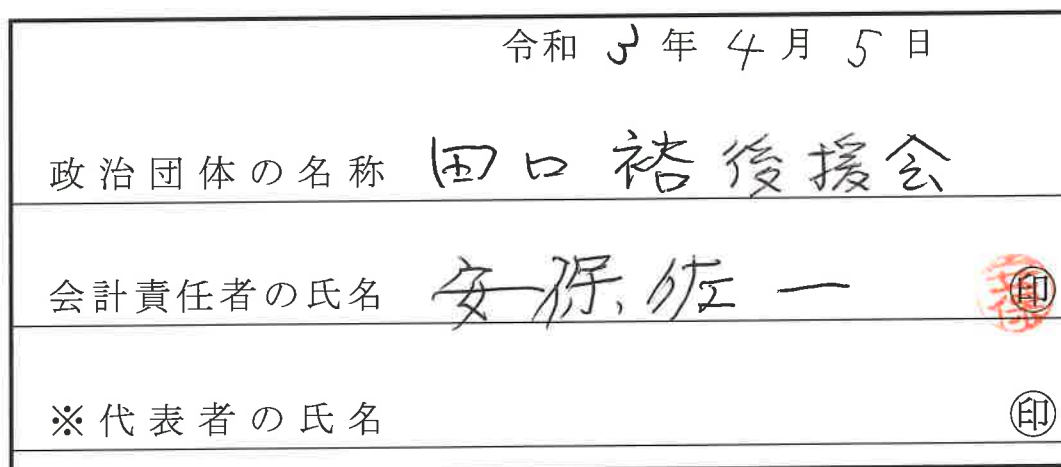 令和 3 年 4 月 5 日
政治団体の名称 田口裕後援会
会計責任者の氏名 安保佐一 ㊞
※代表者の氏名 ㊞